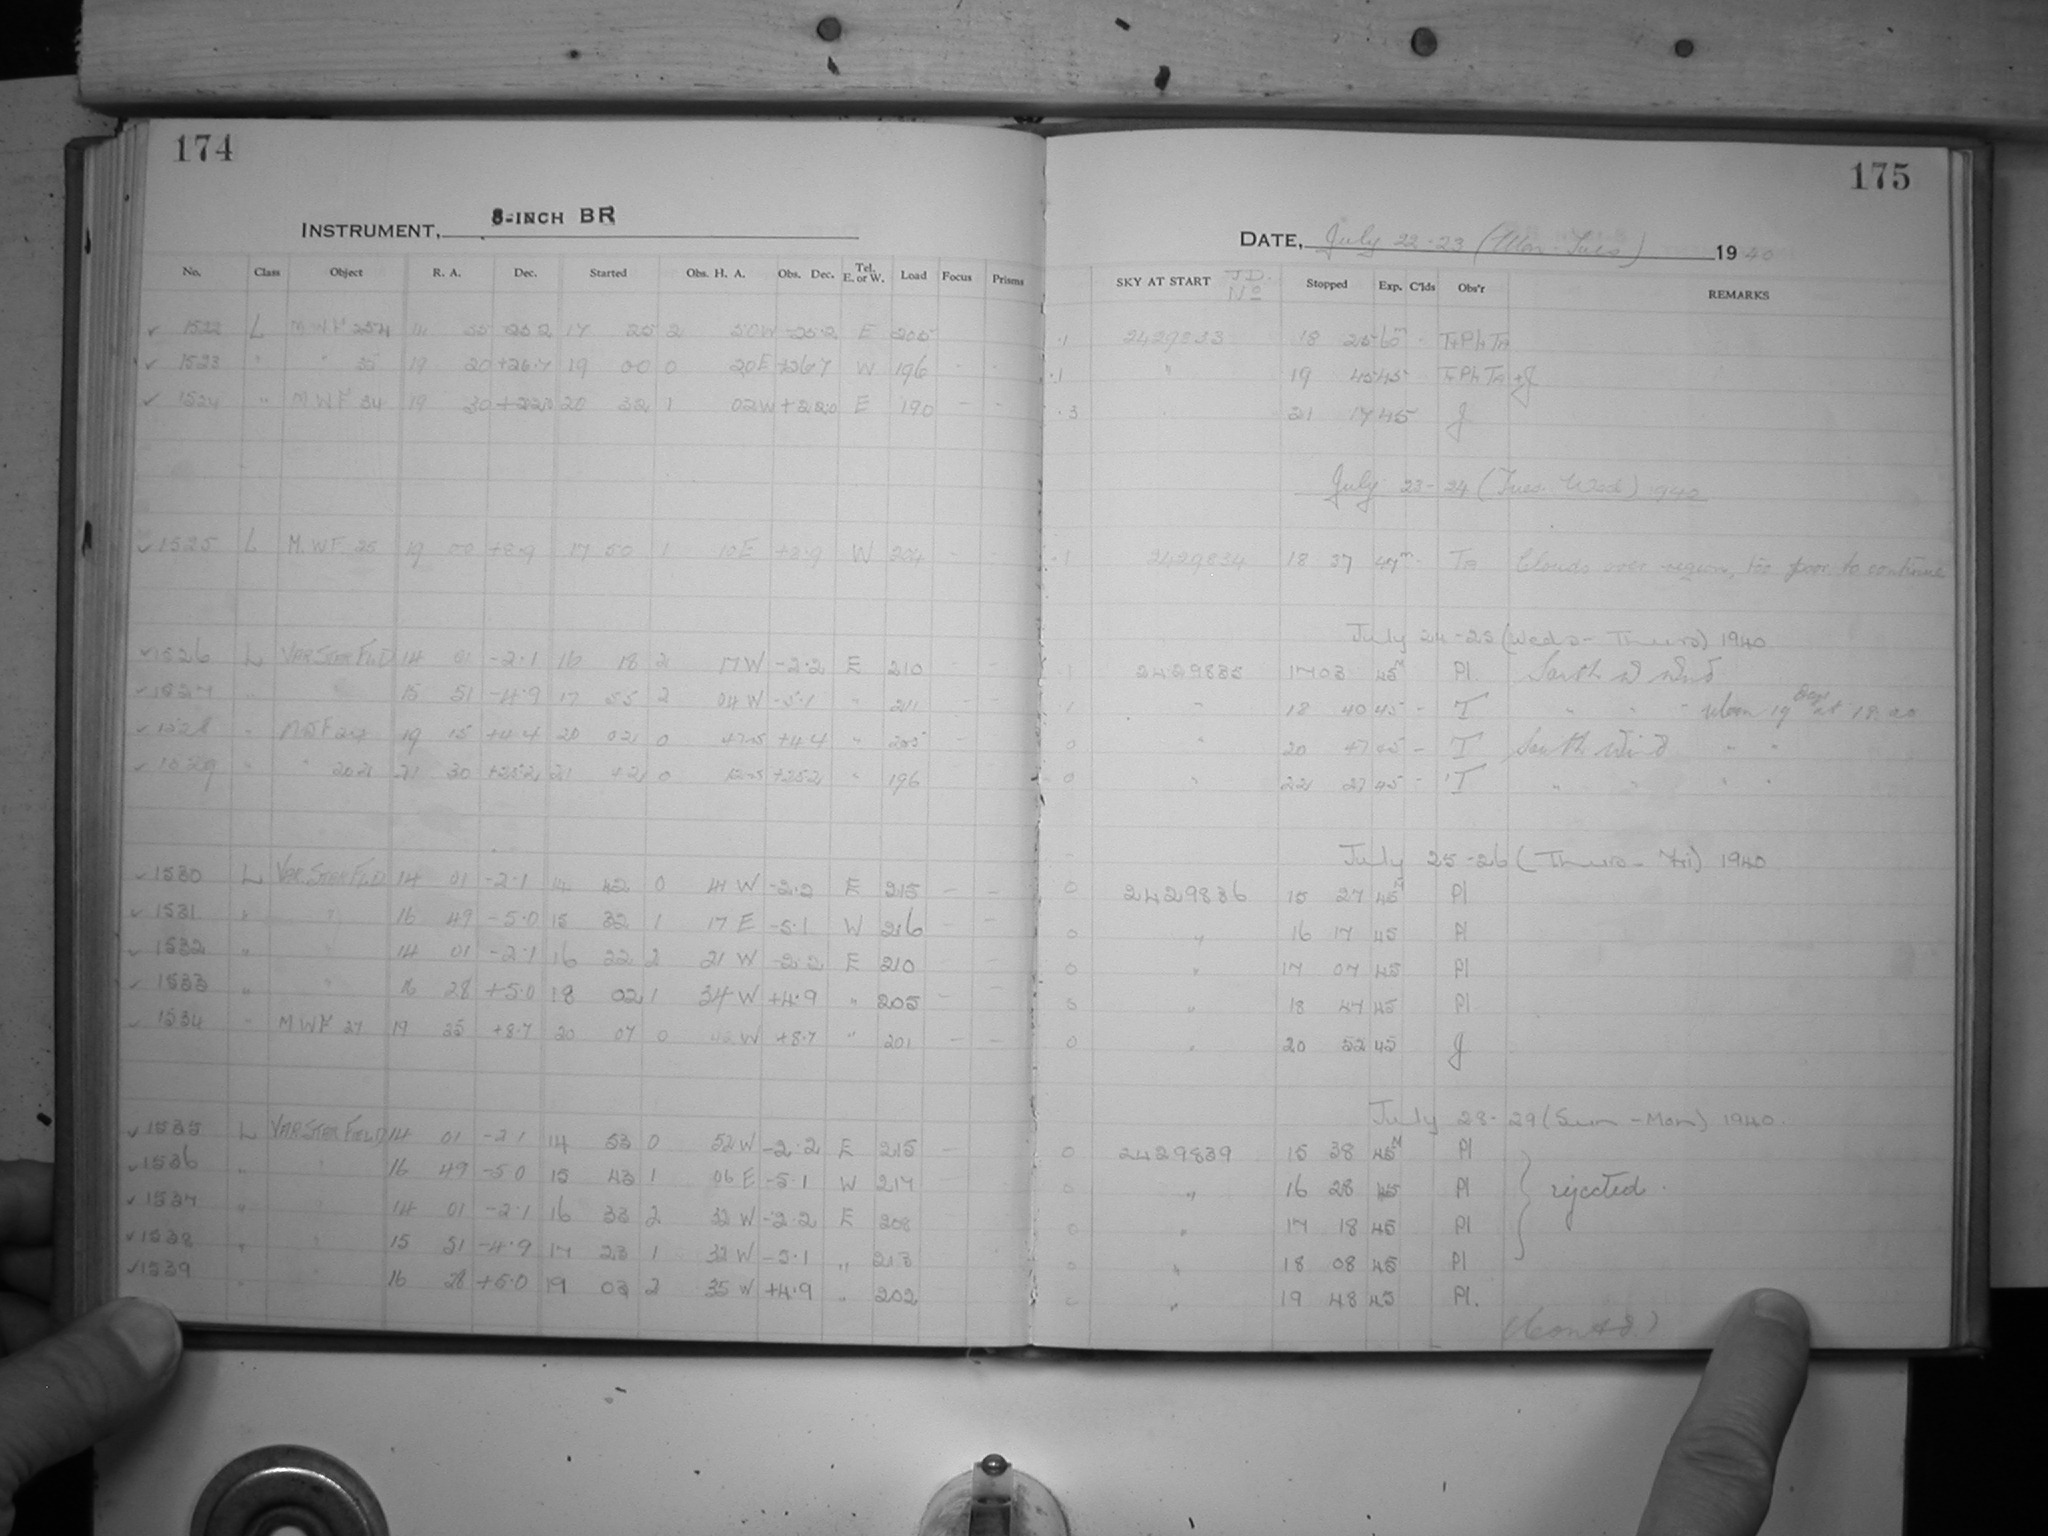 174
INSTRUMENT, 8-INCH BR
No. Class Object R. A. Dec. Started Obs. H. A. Obs. Dec. Tel. E. or W. Load Focus Prisms
1522 L MWF 254 25 2 W -25.2 E 205
1523 " " 19 20 +26.7 19 00 0 20E +26.7 W 196 - -
1524 " MWF 34 19 30 +22.0 20 32 1 02W +22.0 E 190 - -
1525 L M.WF 25 19 00 +8.9 17 50 1 10E +8.9 W 204 - -
1526 L VAR STAR FLD 14 01 -2.1 16 18 2 17W -2.2 E 210 - -
1527 " 15 51 -4.9 17 55 2 04W -5.1 " 211
1528 " 19 15 +4.4 20 02 0 +4.4 " 205
1529 " " 21 30 +25.2 21 42 0 +25.2 " 196
1530 L VAR. STAR FLD 14 01 -2.1 14 42 0 41 W -2.2 E 215 - -
1531 " " 16 49 -5.0 15 32 1 17 E -5.1 W 216 - -
1532 " " 14 01 -2.1 16 22 2 21 W -2.2 E 210
1533 " " 16 28 +5.0 18 02 1 34 W +4.9 " 205 - -
1534 " MWF 27 19 35 +8.7 20 07 0 W +8.7 " 201 - -
1535 L VAR STAR FIELD 14 01 -2.1 14 53 0 52W -2.2 E 215 -
1536 " " 16 49 -5.0 15 43 1 06E -5.1 W 217
1537 " 14 01 -2.1 16 33 2 32 W -2.2 E 208
1538 " " 15 51 -4.9 17 23 1 32W -5.1 " 213
1539 " 16 28 +5.0 19 03 2 35 W +4.9 " 202
175
DATE, July 22-23 (Mon-Tues) 1940
SKY AT START J.D. No Stopped Exp. C'lds Obs'r REMARKS
.1 2429833 18 25 60m
.1 " 19 45 45
.3 21 17 45 J
July 23-24 (Tues. Wed) 1940
.1 2429834 18 37 47m Clouds over region, too poor to continue
July 24-25 (Weds - Thurs) 1940
.1 2429835 17 03 45M Pl South Wind
.1 " 18 40 45 - T " " at
0 " 20 47 45 - T South Wind " "
0 " 22 27 45 - T " " " "
July 25-26 (Thurs - Fri) 1940
0 2429836 15 27 45M Pl
0 " 16 17 45 Pl
0 " 17 07 45 Pl
0 " 18 47 45 Pl
0 " 20 52 45 J
July 28-29 (Sun - Mon) 1940.
0 2429839 15 38 45M Pl
0 " 16 28 45 Pl rejected.
0 " 17 18 45 Pl
0 " 18 08 45 Pl
" 19 48 45 Pl.
(Contd)